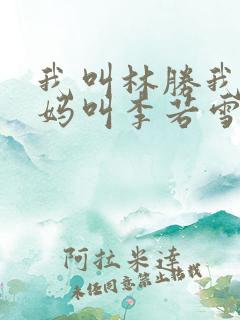 我叫林勝我
妈叫李若雪
阿拉米達
未经同意禁止转载